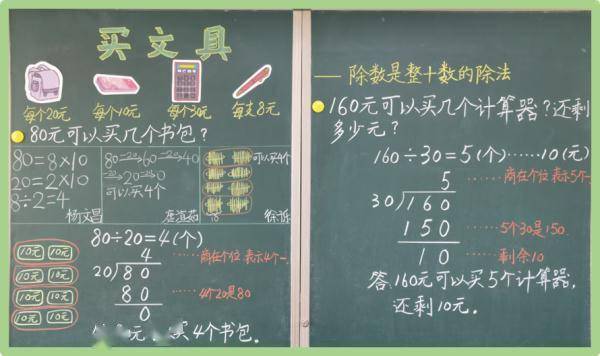 买文具
每个20元 每个10元 每个30元 每支8元
80元可以买几个书包?
80=8×10
20=2×10
8÷2=4
80-20→60-20→40
-20→20-20→0
可以买4个
可以买4个
80÷20=4(个)
4
20)80
80
0
……商在个位 表示4个一
……4个20是80
10元 10元
10元 10元
10元 10元
10元 10元
买4个书包.
——除数是整十数的除法
160元可以买几个计算器?还剩
多少元?
160÷30=5(个)……10(元)
5 ……商在个位 表示5个一
30)160
150 ……5个30是150
10 ……剩余10
答:160元可以买5个计算器,
还剩10元.